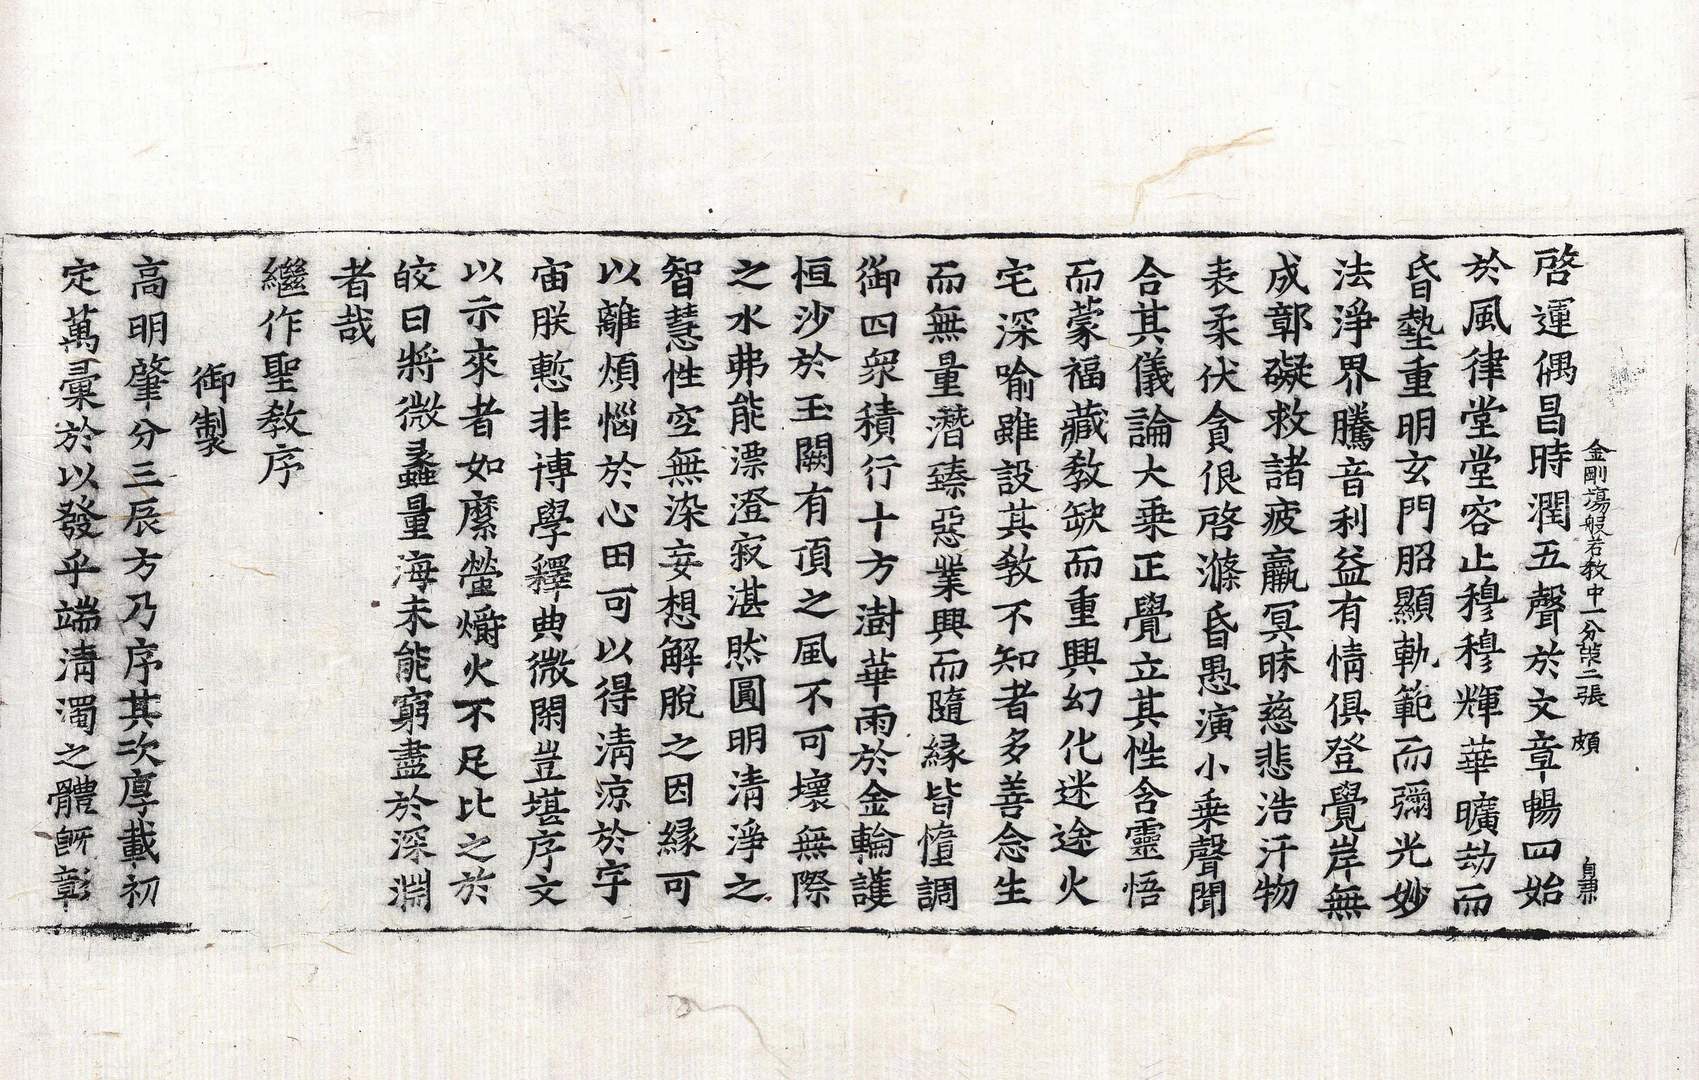 金剛場般若教中一分 第二張 頗
自肅
啓運偶昌時潤五聲於文章暢四始
於風律堂堂容止穆穆輝華曠劫而
昏墊重明玄門昭顯軌範而彌光妙
法淨界騰音利益有情俱登覺岸無
成鄣礙救諸疲羸冥昧慈悲浩汗物
表柔伏貪佷啓滌昏愚演小乗聲聞
合其儀論大乗正覺立其性含靈悟
而蒙福藏教缺而重興幻化迷途火
宅深喻雖設其教不知者多善念生
而無量潛臻惡業興而隨縁皆憧調
御四衆積行十方澍華雨於金輪護
恒沙於玉闕有頂之風不可壞無際
之水弗能漂澄寂湛然圓明清淨之
智慧性空無染妄想解脫之因縁可
以離煩惱於心田可以得清涼於宇
宙朕慙非博學釋典微閑豈堪序文
以示來者如縻螢爝火不足比之於
皎日將微蠡量海未能窮盡於深淵
者哉
繼作聖教序
御製
高明肇分三辰方乃序其次厚載初
定萬彙於以發乎端清濁之體旣彰